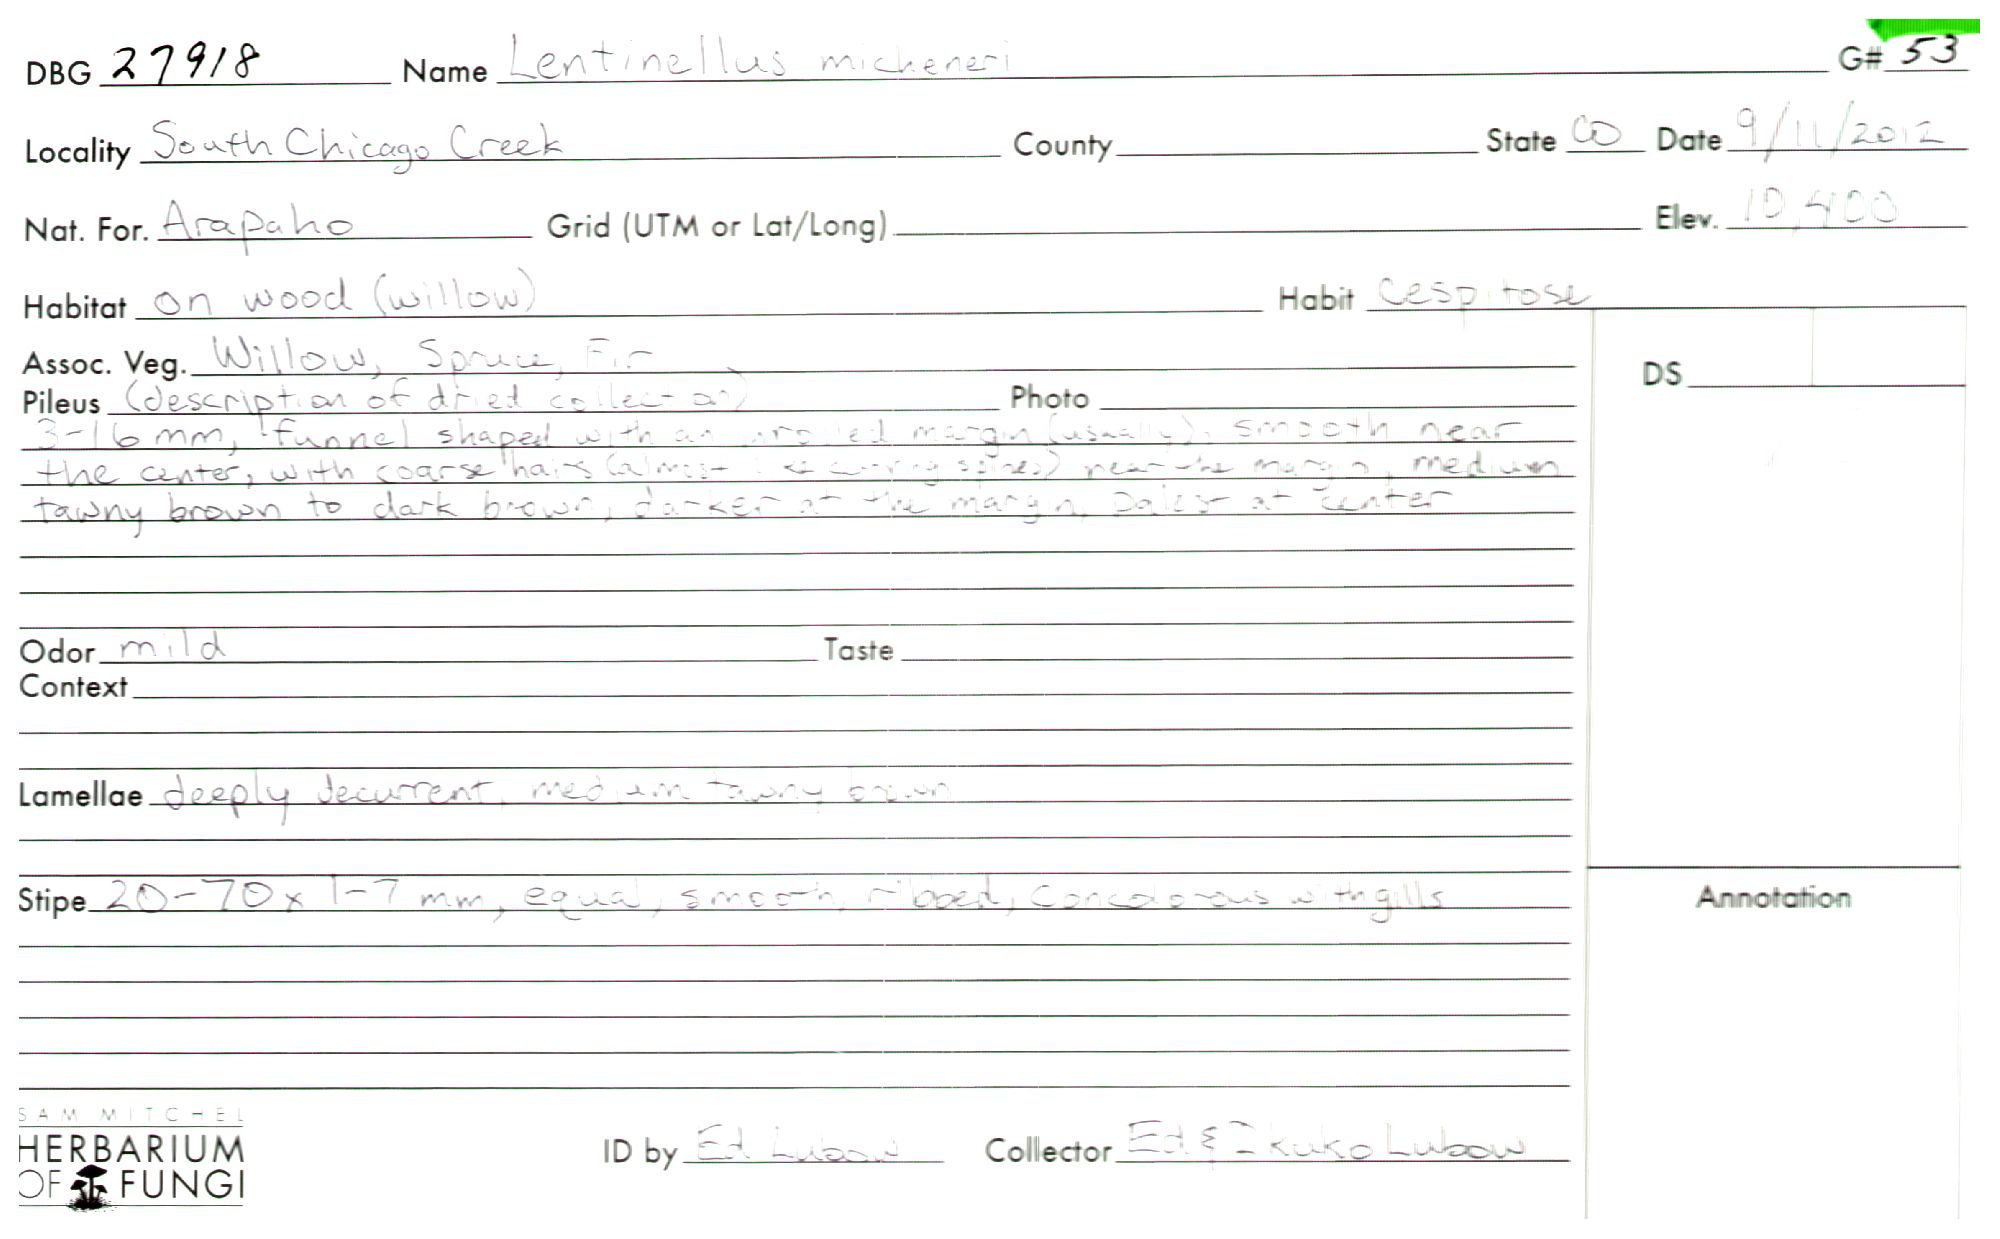 DBG 27918 Name Lentinellus micheneri G# 53
Locality South Chicago Creek County State CO Date 9/11/2012
Nat. For. Arapaho Grid (UTM or Lat/Long) Elev. 10,400
Habitat on wood (willow) Habit Cespitose
Assoc. Veg. Willow, Spruce, Fir DS
Pileus (description of dried collection) Photo
3-16 mm, funnel shaped with an inrolled margin (usually), smooth near
the center, with coarse hairs (almost like curving spines) near the margin, medium
tawny brown to dark brown, darker at the margin, palest at center
Odor mild Taste
Context
Lamellae deeply decurrent, medium tawny brown
Stipe 20-70 x 1-7 mm, equal, smooth, ribbed, concolorous with gills Annotation
SAM MITCHEL
HERBARIUM
OF FUNGI
ID by Ed Lubow Collector Ed & Ikuko Lubow